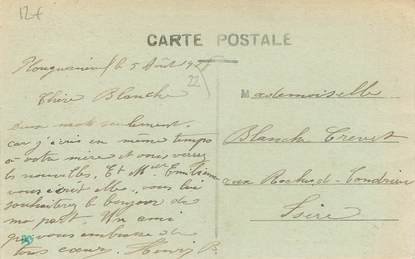 12f
CARTE POSTALE
le 5 Août
22
Chère Blanche
deux mots seulement.
car j'écris en même temps
à votre mère et vous verrez
les nouvelles, Et
vous écrit elle, vous lui
souhaiterez le bonjour de
ma part. Un ami
qui vous embrasse de
tous cœur. Henri B.
Mademoiselle
Blanche Crevet
aux Roches-de-Condrieu
Isère